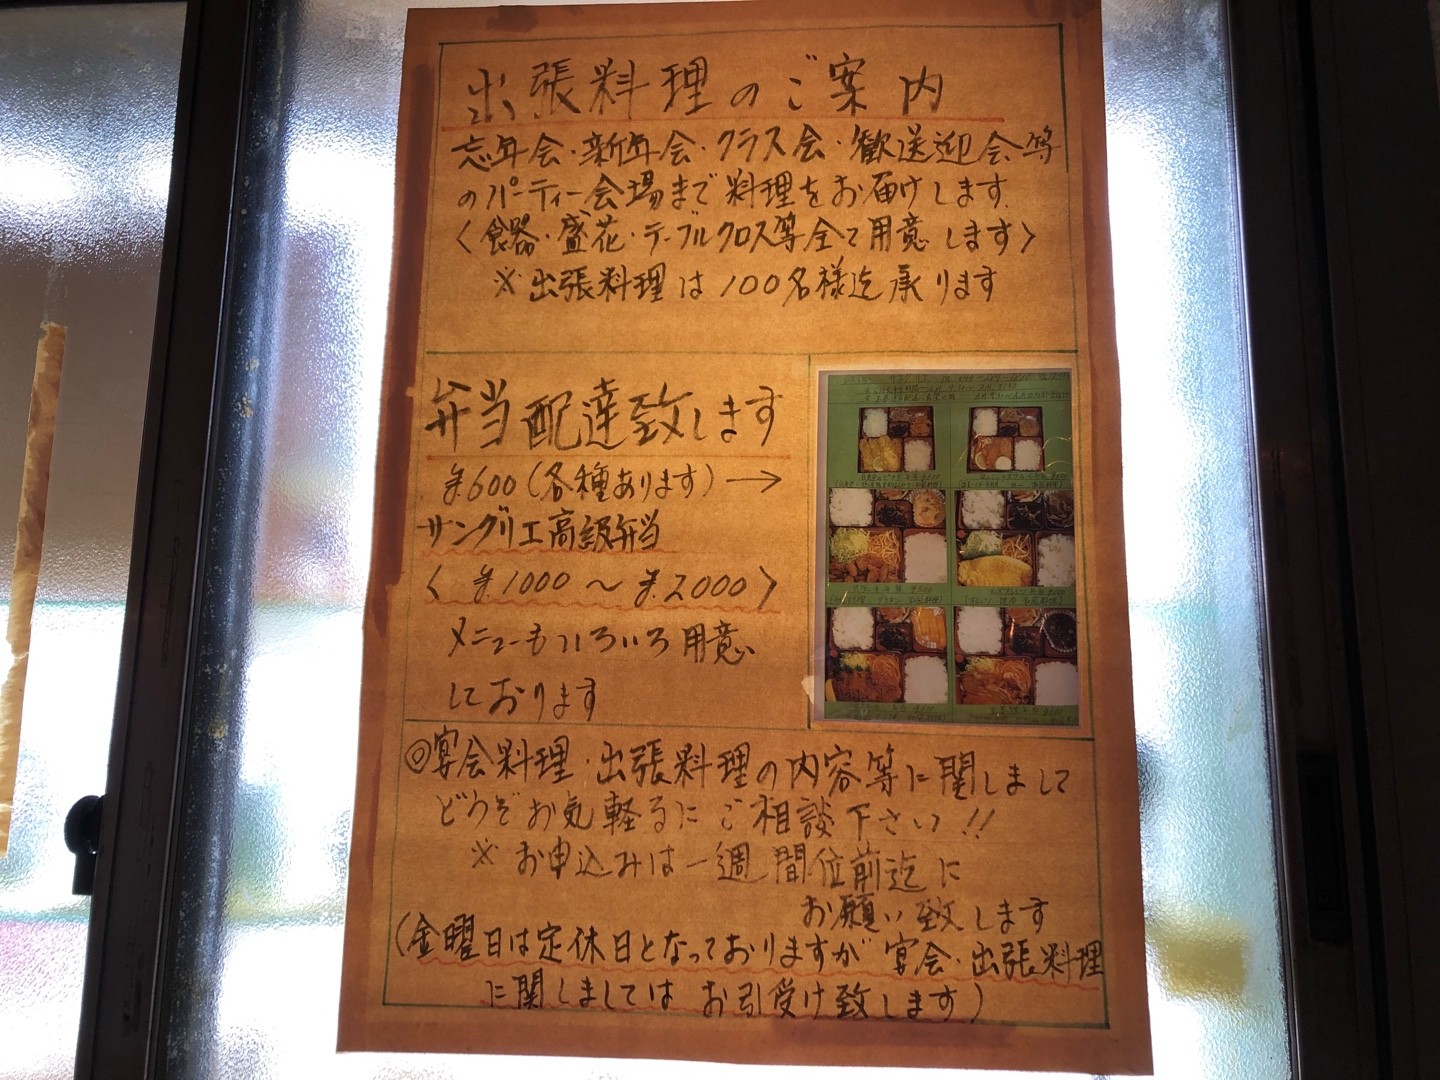 出張料理のご案内
忘年会・新年会・クラス会・歓送迎会等
のパーティー会場まで料理をお届けします.
〈食器・盛花・テーブルクロス等全て用意します〉
※出張料理は100名様迄承ります
弁当配達致します
¥600(各種あります)→
サングリエ高級弁当
〈¥1000～¥2000〉
メニューもいろいろ用意
しております
◎宴会料理・出張料理の内容等に関しまして
どうぞお気軽るにご相談下さい!!
※お申込みは一週間位前迄に
お願い致します
(金曜日は定休日となっておりますが宴会・出張料理
に関しましてはお引受け致します)